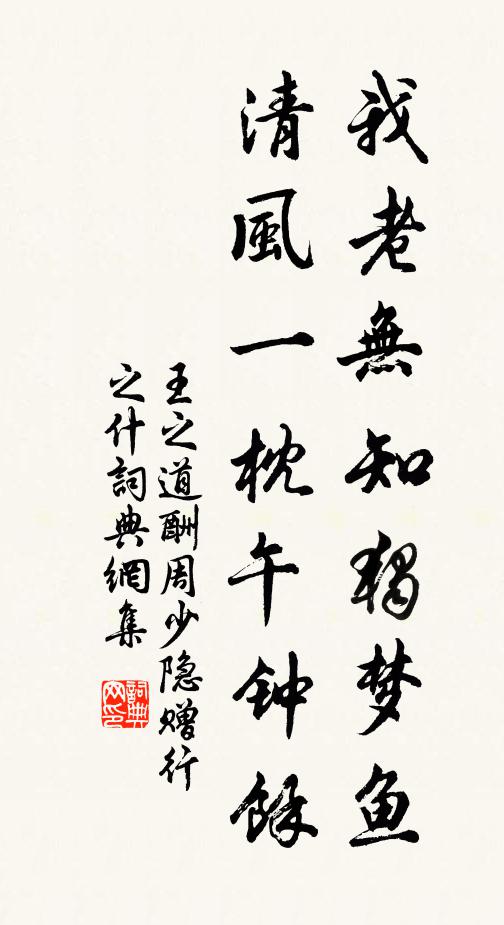 我老無知獨梦鱼
清風一枕午钟餘
王之道酬周少隐赠行
之什詞典網集
詞典網印